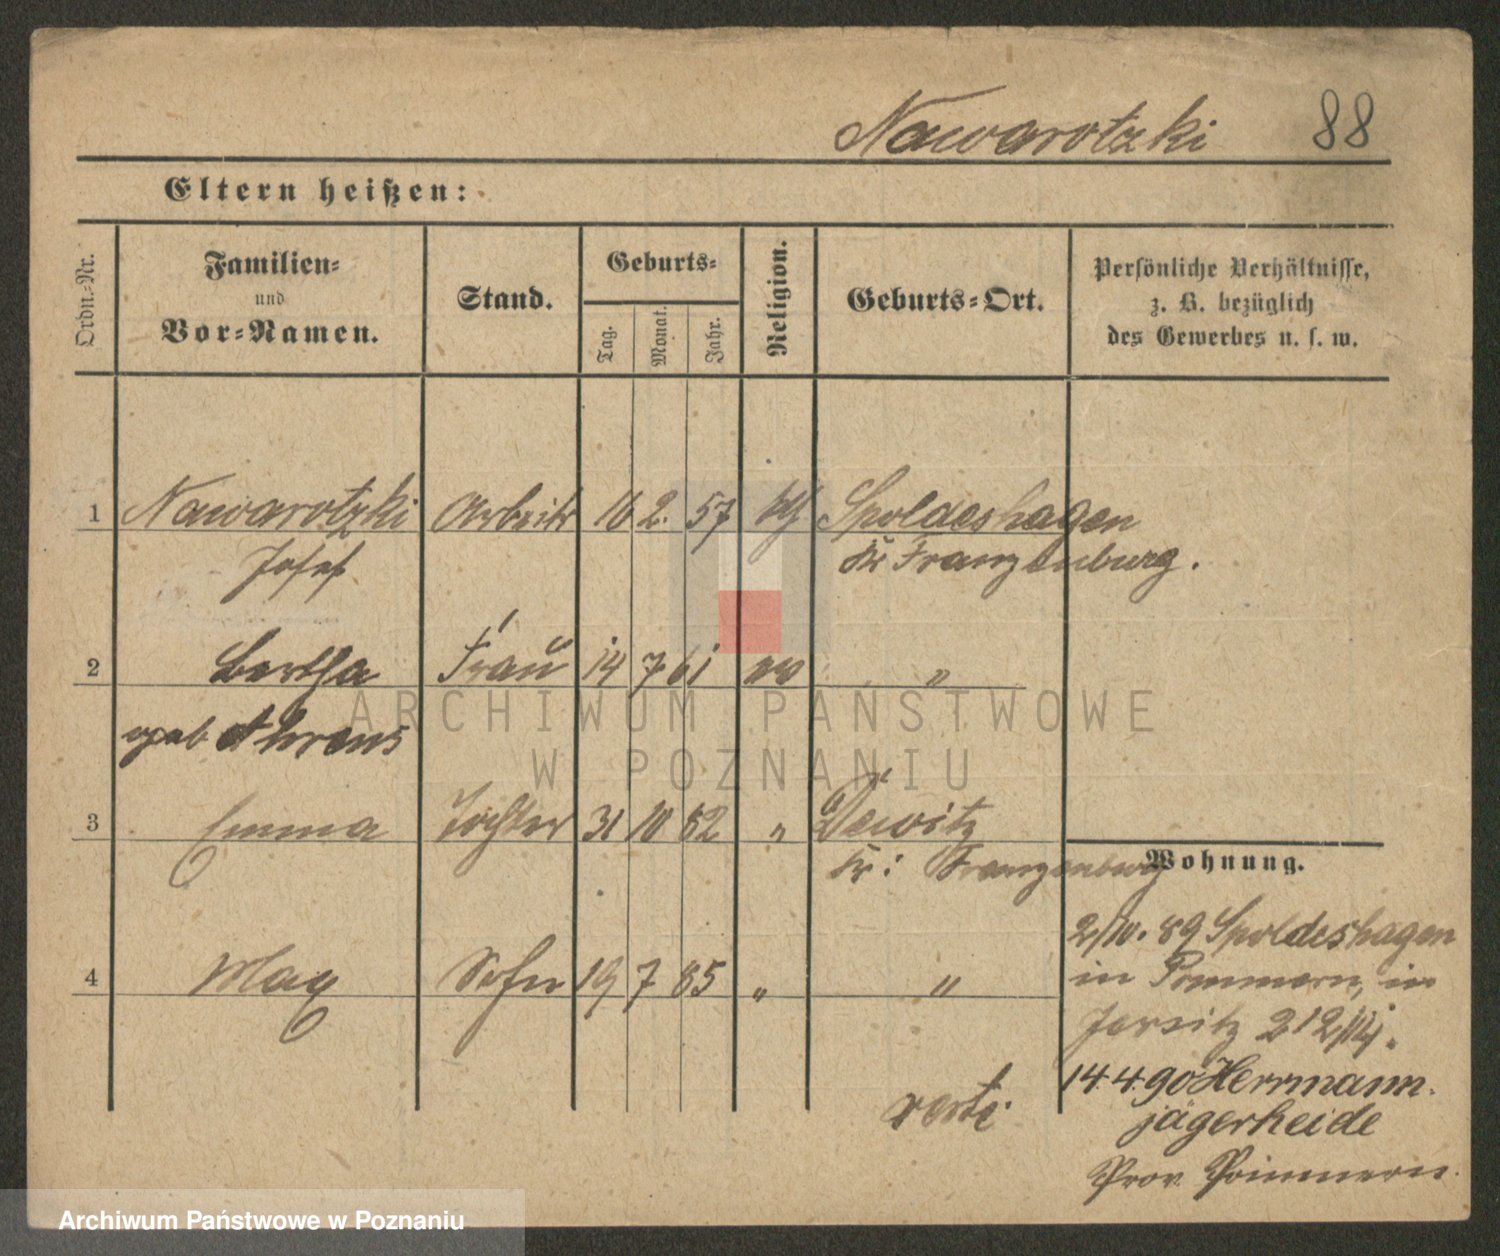 Nawarotzki 88
Eltern heißen:
Ordn.-Nr. Familien- und Vor-Namen. Stand. Geburts- Tag. Monat. Jahr. Religion. Geburts-Ort. Persönliche Verhältnisse, z. B. bezüglich des Gewerbes u. s. w.
1 Nawarotzki Arbeitr 16 2. 57 kth Spoldeshagen
Josef Kr Franzenburg.
2 Bertha Frau 14 7 61 ev "
geb Ahrens
3 Emma Tochter 31 10 82 " Dewitz
Kr: Franzenburg
Wohnung.
2/10. 89 Spoldeshagen
4 Max Sohn 19 7 85 " "
in Pommern, in
Jersitz 212
14 4. 90 Herrmann-
jägerheide
verte.
Prov. Pommern.
ARCHIWUM PAŃSTWOWE
W POZNANIU
Archiwum Państwowe w Poznaniu